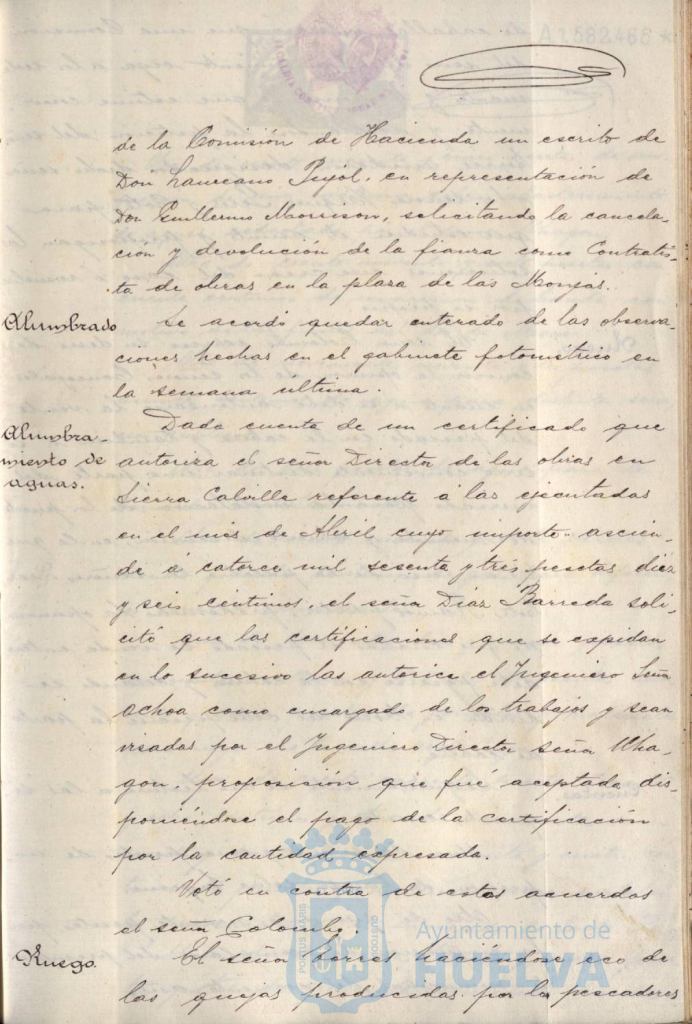 A1582466*
de la Comisión de Hacienda un escrito de
Don Laureano Pujol, en representación de
Don Guillermo Morrison, solicitando la cancela-
ción y devolución de la fianza como Contratis-
ta de obras en la plaza de las Monjas.
Alumbrado
Se acordó quedar enterado de las observa-
ciones hechas en el gabinete fotométrico en
la semana ultima.
Alumbra-
miento de
aguas.
Dada cuenta de un certificado que
autoriza el señor Director de las obras en
Sierra Calvilla referente á las ejecutadas
en el mes de Abril cuyo importe ascien-
de á catorce mil sesenta y tres pesetas diez
y seis centimos, el señor Diaz Barreda soli-
citó que las certificaciones que se expidan
en lo sucesivo las autorice el Ingeniero Señor
Ochoa como encargado de los trabajos y sean
visadas por el Ingeniero Director señor
gon, proposición que fué aceptada dis-
poniéndose el pago de la certificación
por la cantidad expresada.
Votó en contra de estos acuerdos
el señor Colombo.
Ruego.
El señor Borres haciéndose eco de
las quejas producidas por los pescadores
Ayuntamiento de
HUELVA